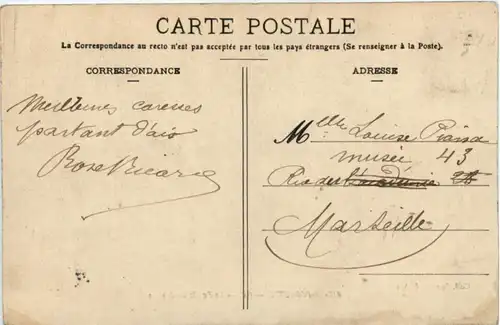 CARTE POSTALE
La Correspondance au recto n'est pas acceptée par tous les pays étrangers (Se renseigner à la Poste).
CORRESPONDANCE
ADRESSE
Meilleures caresses
partant d'aix
Rose Ricard
Melle Louise
musée 43
Rue de
Marseille